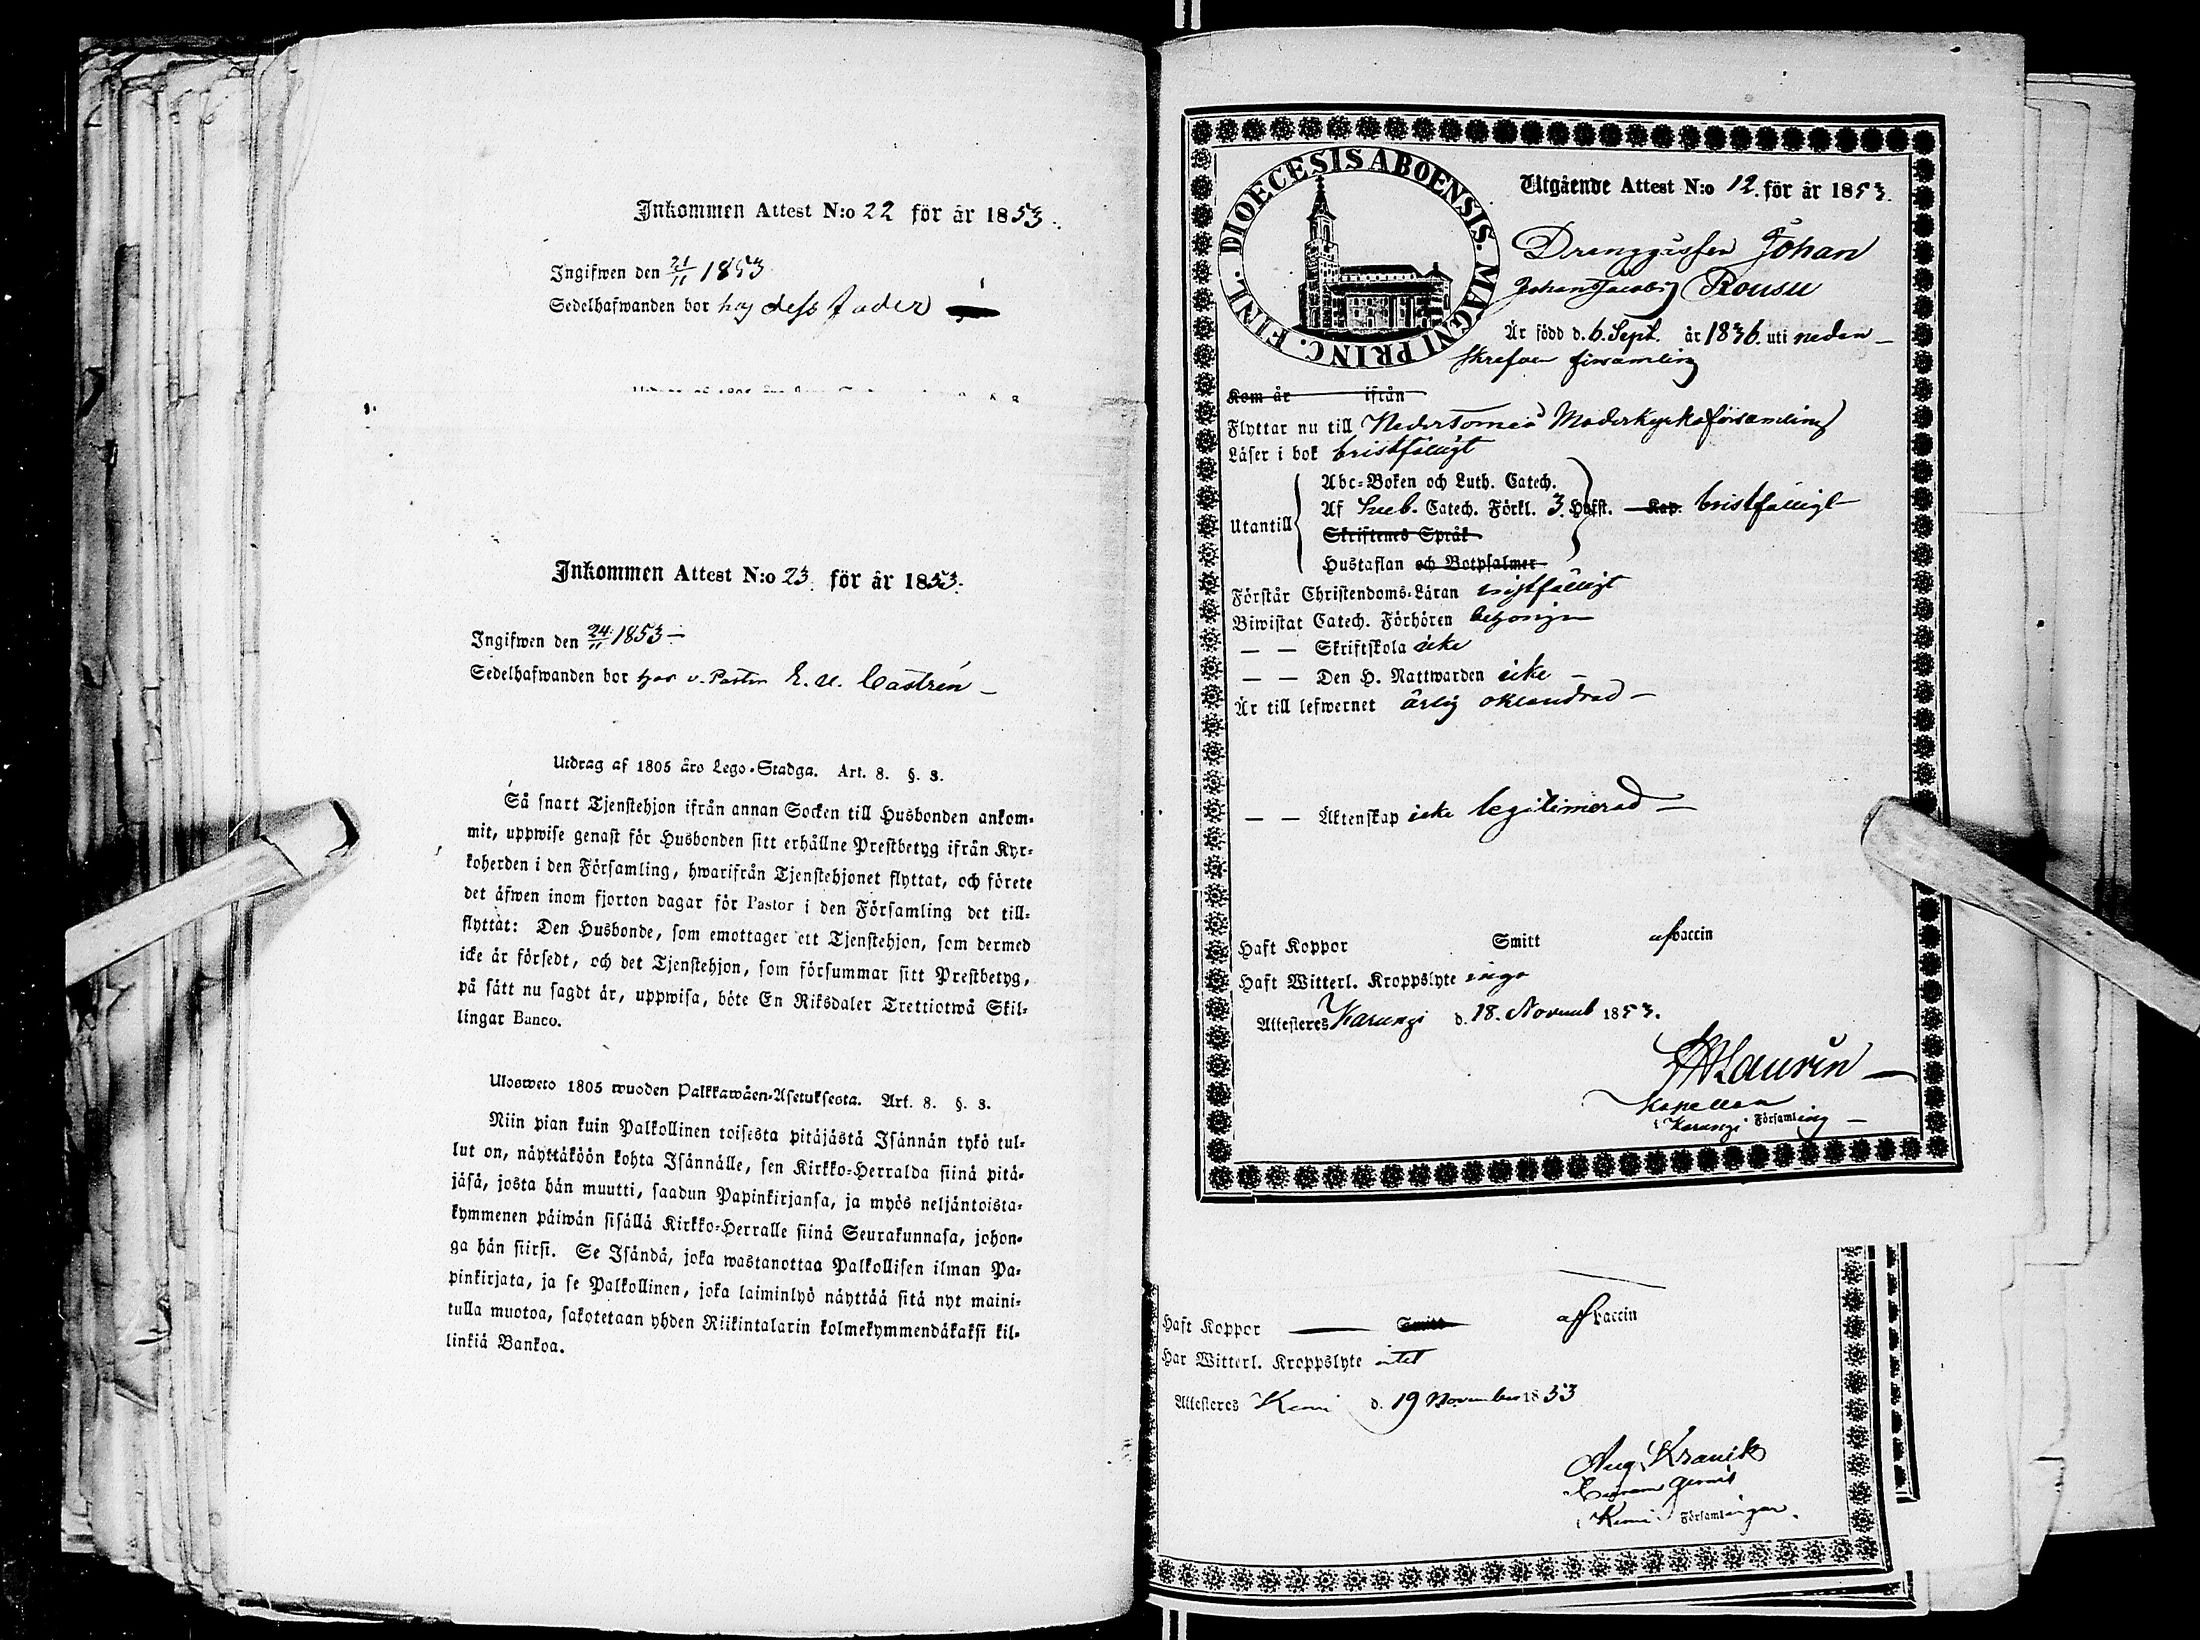 Inkommen Attest N:o 22 för år 1853.
Ingifwen den 21/11 1853
Sedelhafwanden bor hos dess fader
Inkommen Attest N:o 23. för år 1853.
Ingifwen den 24/11 1853 –
Sedelhafwanden bor hos v. Pastor E. U. Castrén –
Utdrag af 1805 års Lego-Stadga. Art. 8. §. 3.
Så snart Tjenstehjon ifrån annan Socken till Husbonden ankom-
mit, uppwise genast för Husbonden sitt erhållne Prestbetyg ifrån Kyr-
koherden i den Församling, hwarifrån Tjenstehjonet flyttat, och förete
det äfwen inom fjorton dagar för Pastor i den Församling det till-
flyttat: Den Husbonde, som emottager ett Tjenstehjon, som dermed
icke är försedt, och det Tjenstehjon, som försummar sitt Prestbetyg,
på sätt nu sagdt är, uppwisa, böte En Riksdaler Trettiotwå Skil-
lingar Banco.
Ulosweto 1805 wuoden Palkkawäen-Asetuksesta. Art. 8. §. 3.
Niin pian kuin Palkollinen toisesta pitäjästä Isännän tykö tul-
lut on, näyttäköön kohta Isännälle, sen Kirkko-Herralda siinä pitä-
jäsä, josta hän muutti, saadun Papinkirjansa, ja myös neljäntoista-
kymmenen päiwän sisällä Kirkko-Herralle siinä Seurakunnasa, johon-
ga hän siirsi. Se Isändä, joka wastanottaa Palkollisen ilman Pa-
pinkirjata, ja se Palkollinen, joka laiminlyö näyttää sitä nyt maini-
tulla muotoa, sakotetaan yhden Riikintalarin kolmekymmendäkaksi kil-
linkiä Bankoa.
DIOECESIS ABOENSIS. MAGNI PRINC. FINL.
Utgående Attest N:o 12. för år 1853.
Drenggossen Johan
Johan Jacob Rousu
Är född d. 6. Sept. år 1836. uti neden–
skrefven församling
Kom år ifrån
Flyttar nu till Nedertorneå Moderkyrkoförsamling
Läser i bok bristfälligt
Utantill
Abc-Boken och Luth. Catech.
Af Sveb. Catech. Förkl. 3. Hufst. Kap. bristfälligt
Skriftenes Språk
Hustaflan och Botpsalmer
Förstår Christendoms-Läran bristfälligt
Biwistat Catech. Förhören
— — Skriftskola icke
— — Den H. Nattwarden icke –
Är till lefwernet ärlig oklandrad –
— — Äktenskap icke legitimerad –
Haft Koppor Smitt af vaccin
Haft Witterl. Kroppslyte inga
Attesteres Karungi d. 18. Novemb 1853.
Laurin –
Kapellan
i Karungi Församling –
Haft Koppor Smitt af vaccin
Har Witterl. Kroppslyte intet
Attesteres Kemi d. 19 November 1853
Aug. Kranck
i Kemi Församlingar.